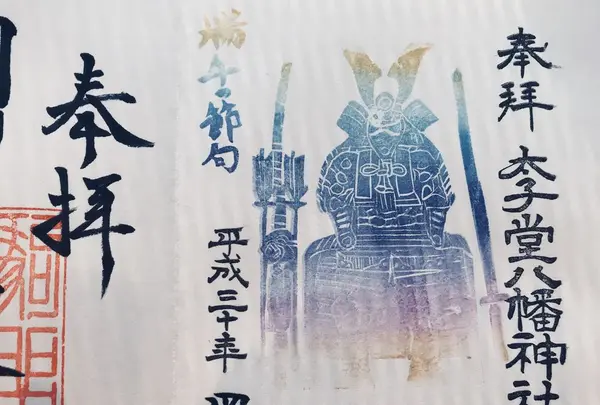 奉拝 太子堂八幡神社
端午の節句
平成三十年 四
奉拝